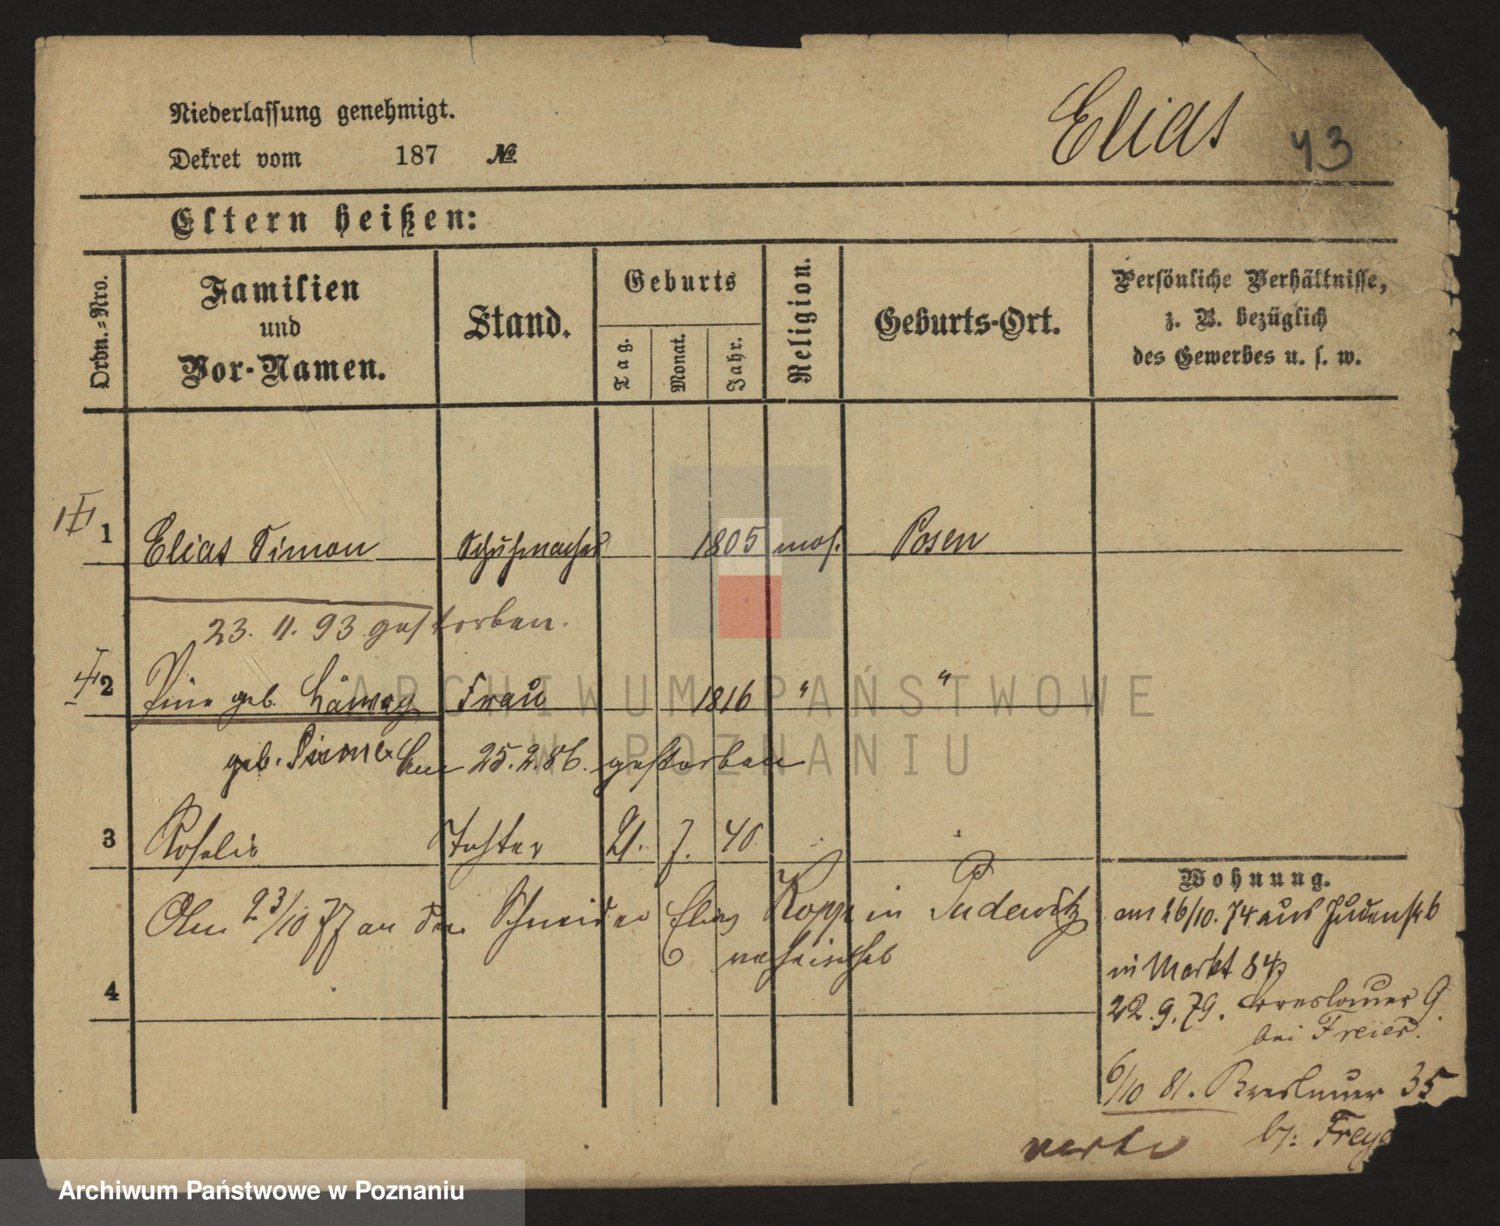 Niederlassung genehmigt.
Dekret vom 187 №
Elias
43
Eltern heißen:
Ordn.=Nro.
Familien
und
Vor-Namen.
Stand.
Geburts
Tag.
Monat.
Jahr.
Religion.
Geburts-Ort.
Persönliche Verhältnisse,
z. B. bezüglich
des Gewerbes u. s. w.
1 Elias Simon Schuhmacher 1805 mos. Posen
23. 11. 93 gestorben.
2 geb. Frau 1816 " "
geb. 25.2.86. gestorben
3 Rosalie Tochter 21. 7. 40.
23/10 77 an den Schneider Elias in Pudewitz
4
Wohnung.
am 26/10. 74 aus Judenstr 6
in Markt 84
22. 9. 79. Breslauer
bei Freier.
6/10 81. Breslauer 35
b/: Frey
ARCHIWUM PAŃSTWOWE
W POZNANIU
Archiwum Państwowe w Poznaniu